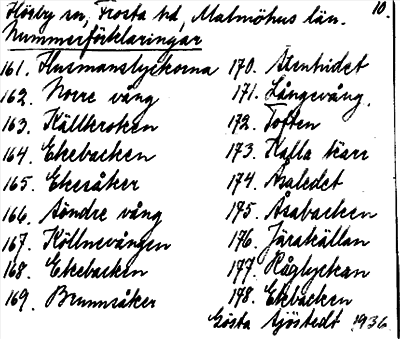 Hörby sn, Frosta hd, Malmöhus län. 10.
Nummerförklaringar
161. Husmanslyckorna
162. Norre vång
163. Källkroken
164. Ekebacken
165. Ekesåker
166. Söndre vång
167. Köllnevången
168. Ekebacken
169. Brunnsåker
170. Stenhidet
171. Långevång.
172. Toften
173. Kalla kärr
174. Åsaledet
175. Åsabacken
176. Järakällan
177. Råglyckan
178. Ekbacken
Gösta Sjöstedt 1936